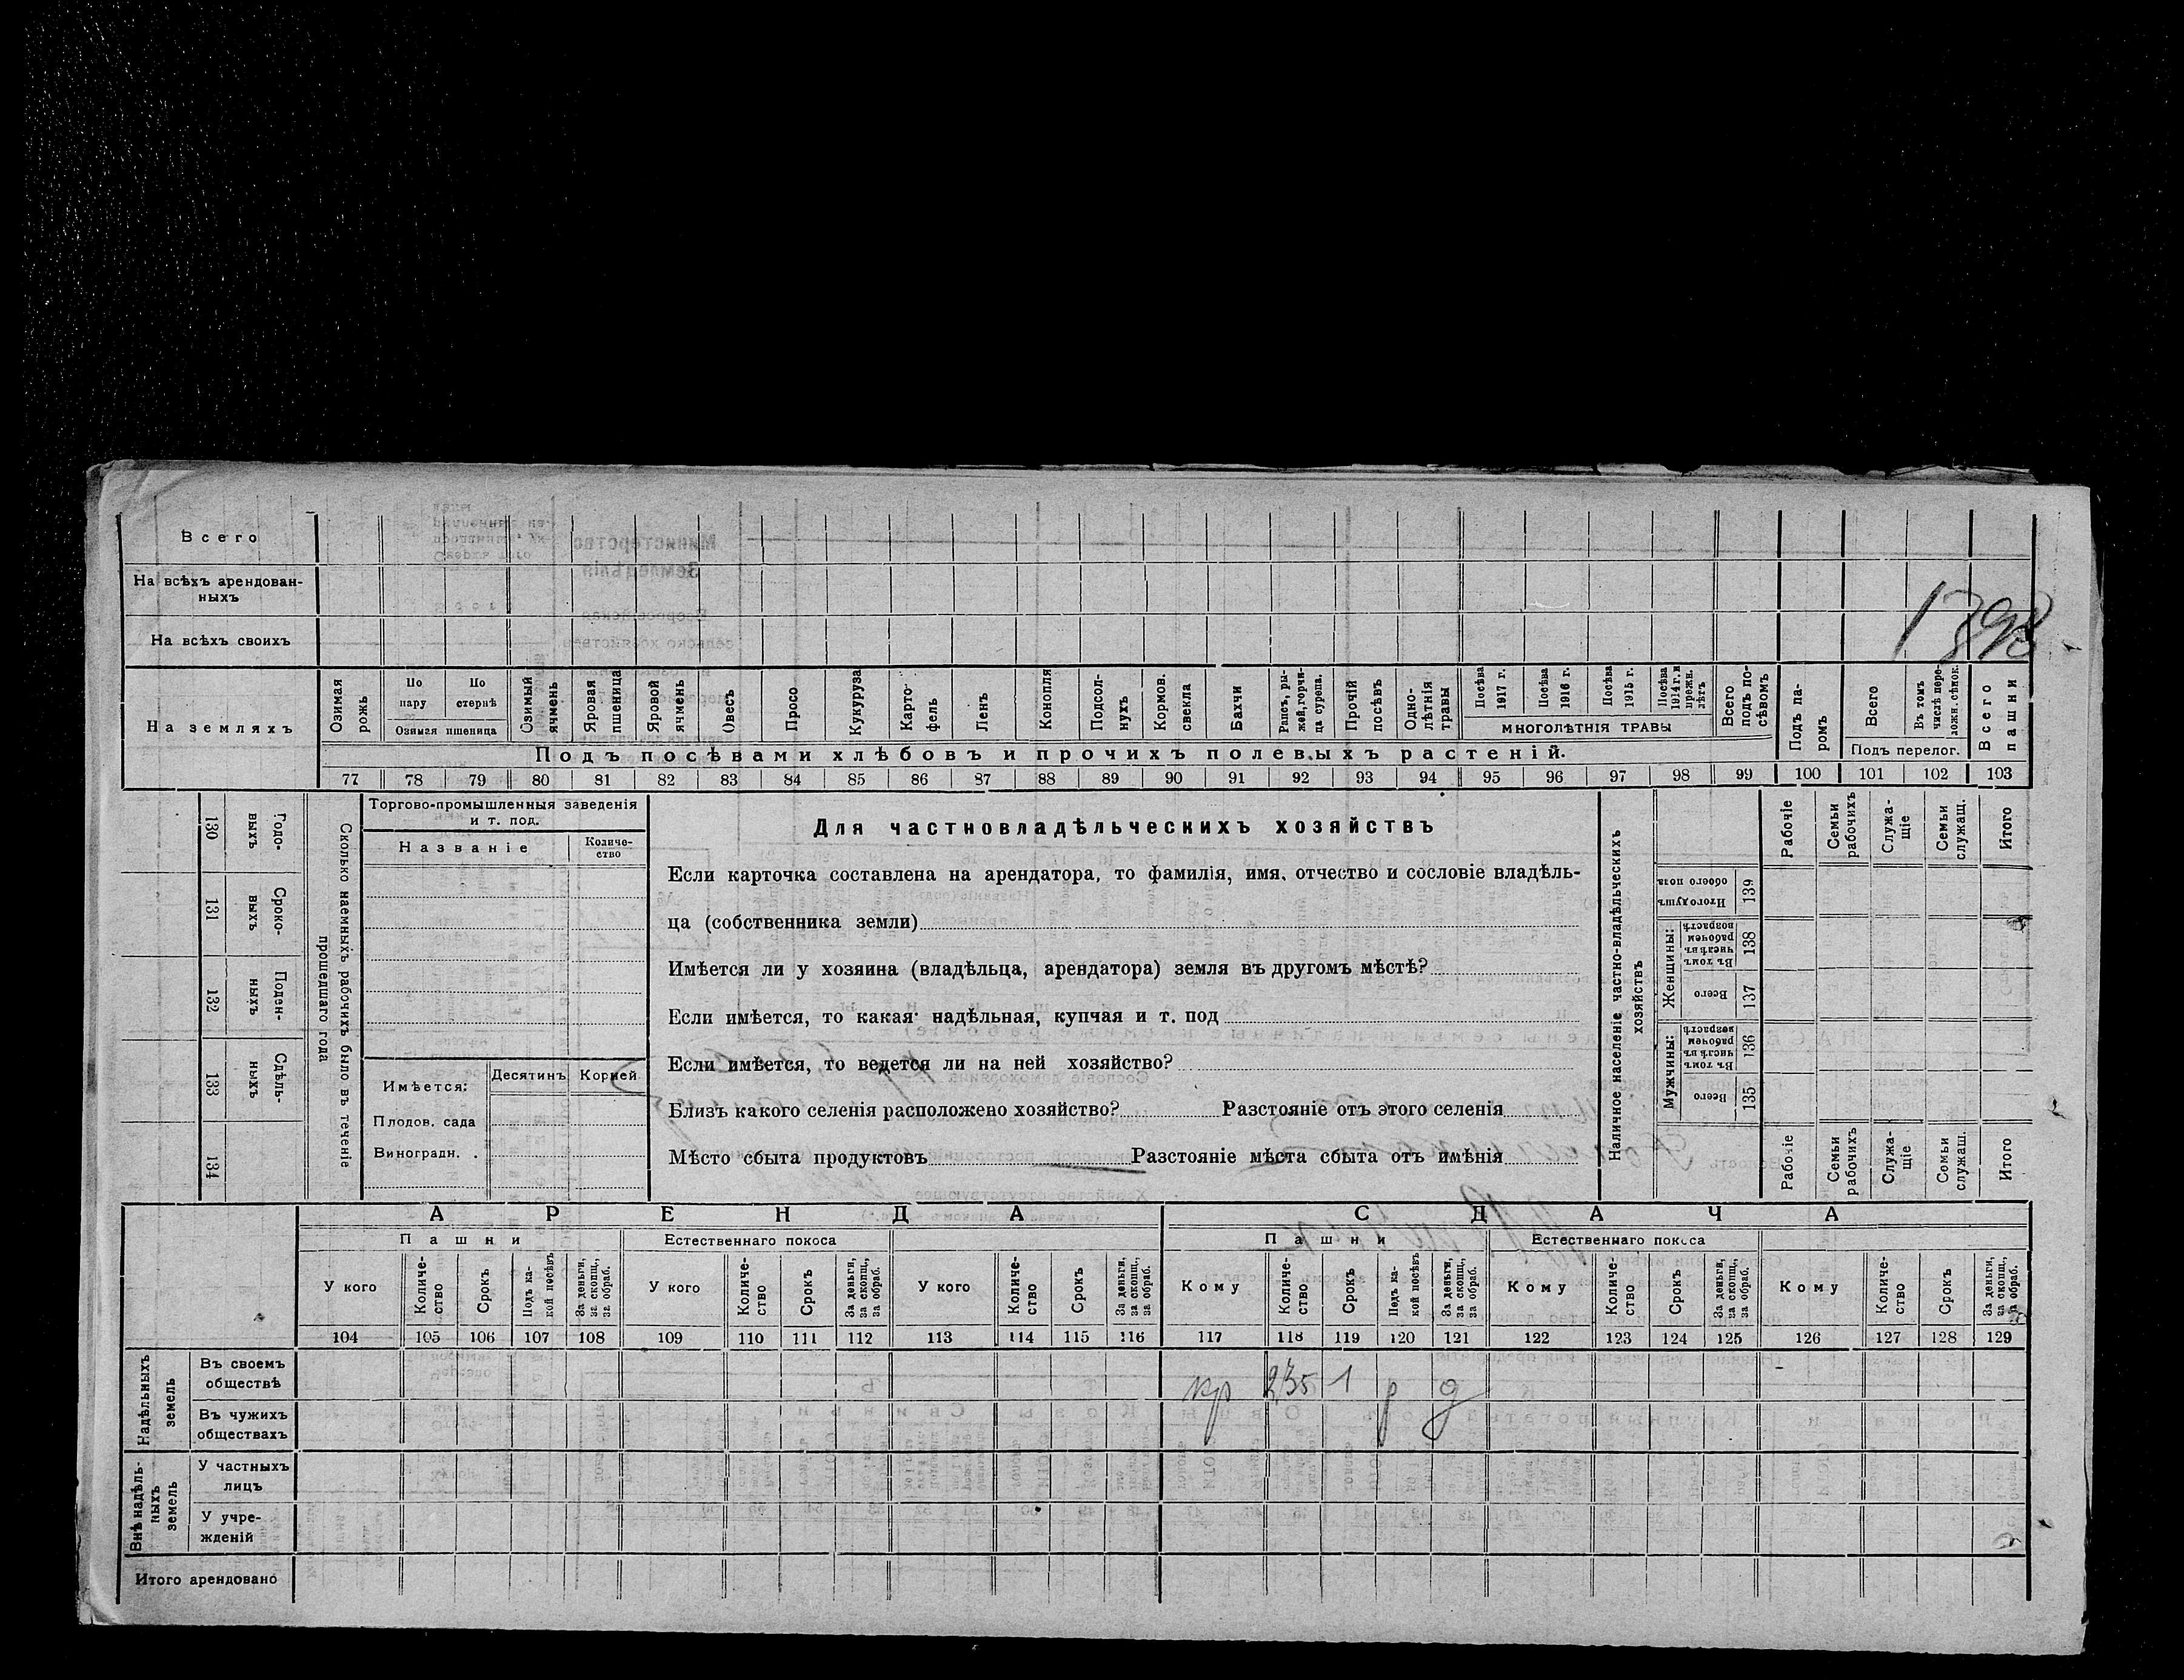 Всего
На всѣхъ арендован-
ныхъ
На всѣхъ своихъ
На земляхъ
Озимая рожь
По пару
По стернѣ
Озимая пшеница
Озимый ячмень
Яровая пшеница
Яровой ячмень
Овесъ
Просо
Кукуруза
Карто-
фель
Ленъ
Конопля
Подсол-
нухъ
Кормов. свекла
Бахчи
Рапсъ, ры-
жей, горчи-
ца сурепа.
Прочій посѣвъ
Одно-
лѣтнія
травы
Посѣва 1917 г.
Посѣва 1916 г.
Посѣва 1915 г.
Посѣва 1914 г. и прежн. лѣтъ
МНОГОЛѢТНІЯ ТРАВЫ
Всего подъ по-
сѣвомъ
Подъ па-
ромъ
Всего
Въ томъ числѣ пере-
ложн. сѣнок.
Подъ перелог.
Всего пашни
Подъ посѣвами хлѣбовъ и прочихъ полевыхъ растеній.
77 78 79 80 81 82 83 84 85 86 87 88 89 90 91 92 93 94 95 96 97 98 99 100 101 102 103
130 Годо-
выхъ
131 Сроко-
выхъ
132 Поден-
ныхъ
133 Сдѣль-
ныхъ
134
Сколько наемныхъ рабочихъ было въ теченіе
прошедшаго года
Торгово-промышленныя заведенія
и т. под.
Названіе
Количе-
ство
Имѣется:
Десятинъ
Корней
Плодов. сада
Виноградн.
Для частновладѣльческихъ хозяйствъ
Если карточка составлена на арендатора, то фамилія, имя, отчество и сословіе владѣль-
ца (собственника земли)
Имѣется ли у хозяина (владѣльца, арендатора) земля въ другомъ мѣстѣ?
Если имѣется, то какая: надѣльная, купчая и т. под
Если имѣется, то ведется ли на ней хозяйство?
Близъ какого селенія расположено хозяйство? Разстояніе отъ этого селенія
Мѣсто сбыта продуктовъ Разстояніе мѣста сбыта отъ имѣнія
Наличное населеніе частно-владѣльческихъ
хозяйствъ
Рабочіе
Семьи рабочихъ
Служа-
щіе
Семьи служащ.
Итого
Итого душъ обоего пола 139
Женщины:
Въ томъ числѣ въ рабочемъ возрастѣ 138
Всего 137
Мужчины:
Въ томъ числѣ въ рабочемъ возрастѣ 136
Всего 135
Рабочіе
Семьи рабочихъ
Служа-
щіе
Семьи служащ.
Итого
АРЕНДА
СДАЧА
Пашни
Естественнаго покоса
Пашни
Естественнаго покоса
У кого
Количе-
ство
Срокъ
Подъ ка-
кой посѣвъ
За деньги, за скопщ., за обраб.
У кого
Количе-
ство
Срокъ
За деньги, за скопщ., за обраб.
У кого
Количе-
ство
Срокъ
За деньги, за скопщ., за обраб.
Кому
Количе-
ство
Срокъ
Подъ ка-
кой посѣвъ
За деньги, за скопщ., за обраб.
Кому
Количе-
ство
Срокъ
За деньги, за скопщ., за обраб.
Кому
Количе-
ство
Срокъ
За деньги, за скопщ., за обраб.
104 105 106 107 108 109 110 111 112 113 114 115 116 117 118 119 120 121 122 123 124 125 126 127 128 129
Надѣльныхъ
земель
Въ своемъ
обществѣ
кр 2,35 1 р д
Въ чужихъ
обществахъ
Внѣ надѣль-
ныхъ
земель
У частныхъ
лицъ
У учре-
жденій
Итого арендовано